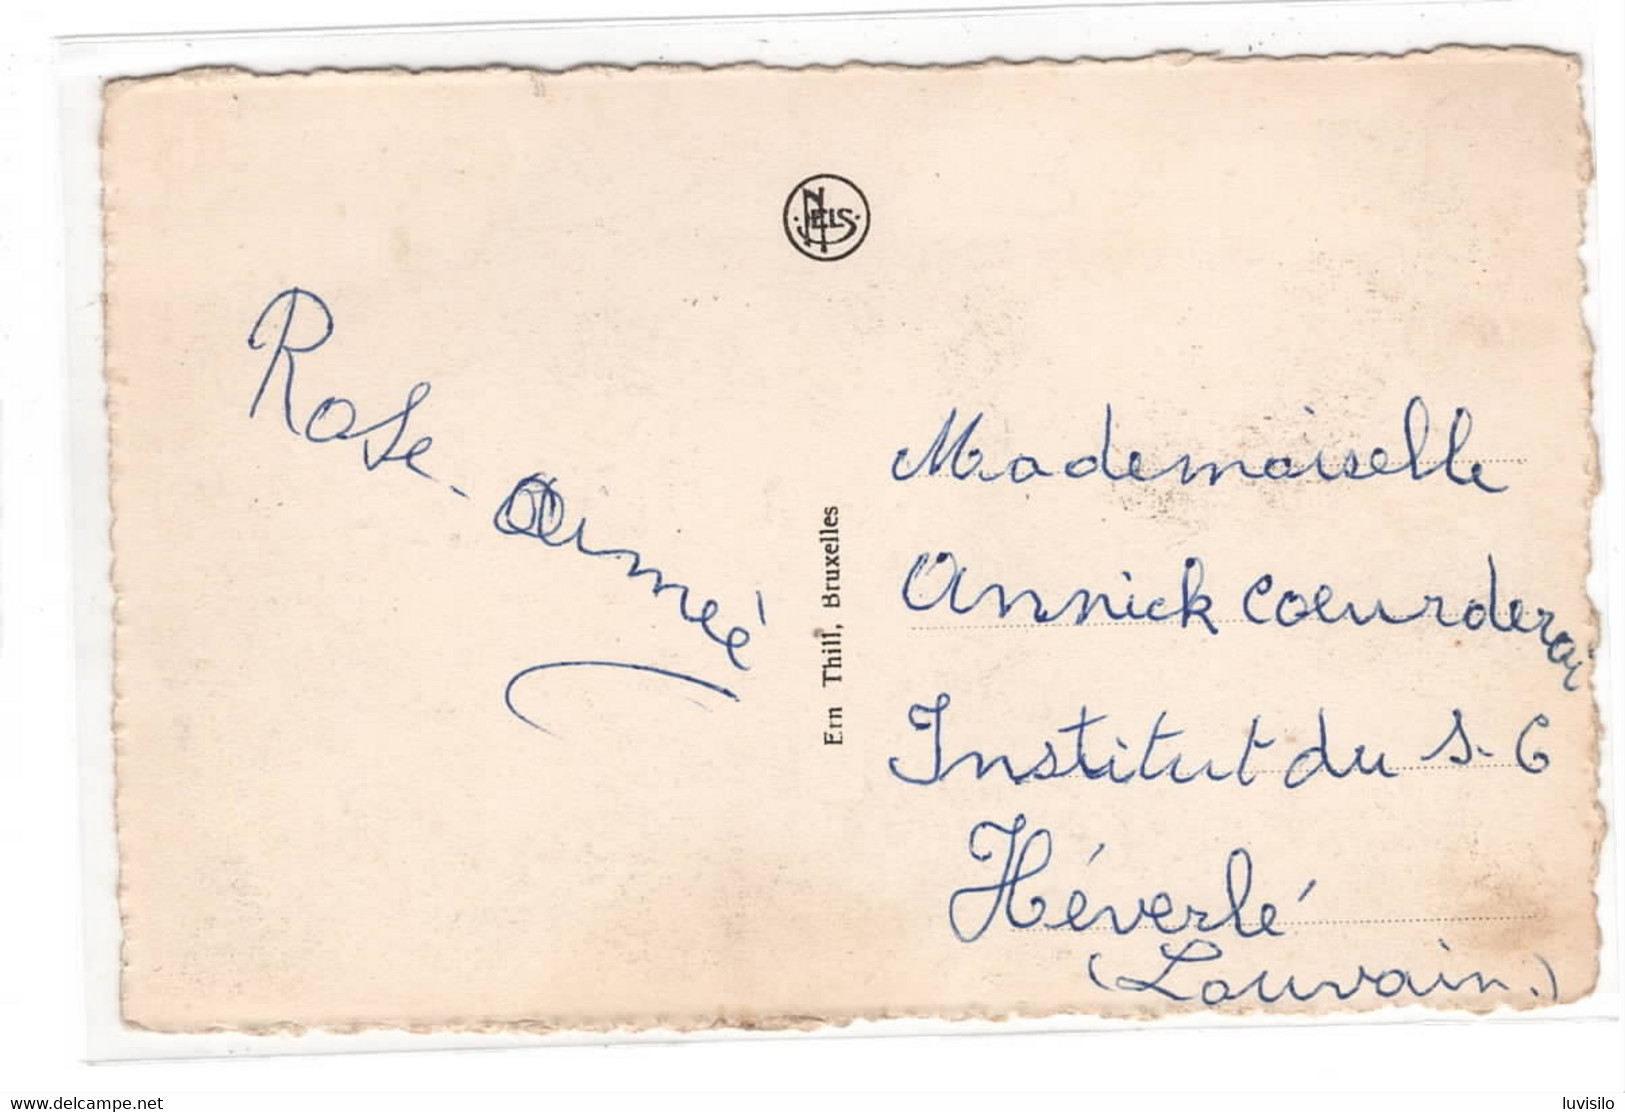 NELS
Rose-Aimeé
Ern Thill, Bruxelles
Mademoiselle
Annick Coeurderoi
Institut du S-C
Héverlé
(Louvain.)
www.delcampe.net
luvisilo